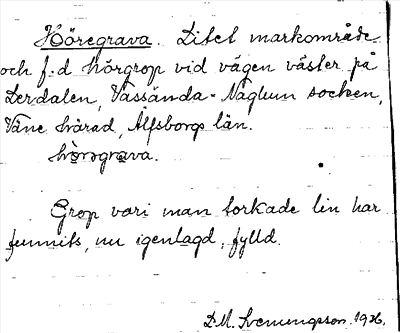 Höregrava. Litet markområde
och f.d hörgrop vid vägen väster på
Lerdalen, Vassända-Naglum socken,
Väne härad, Älfsborgs län.
hörəgrava.
Grop vari man torkade lin har
funnits, nu igenlagd, fylld.
D.M. Svenungsson. 1926.